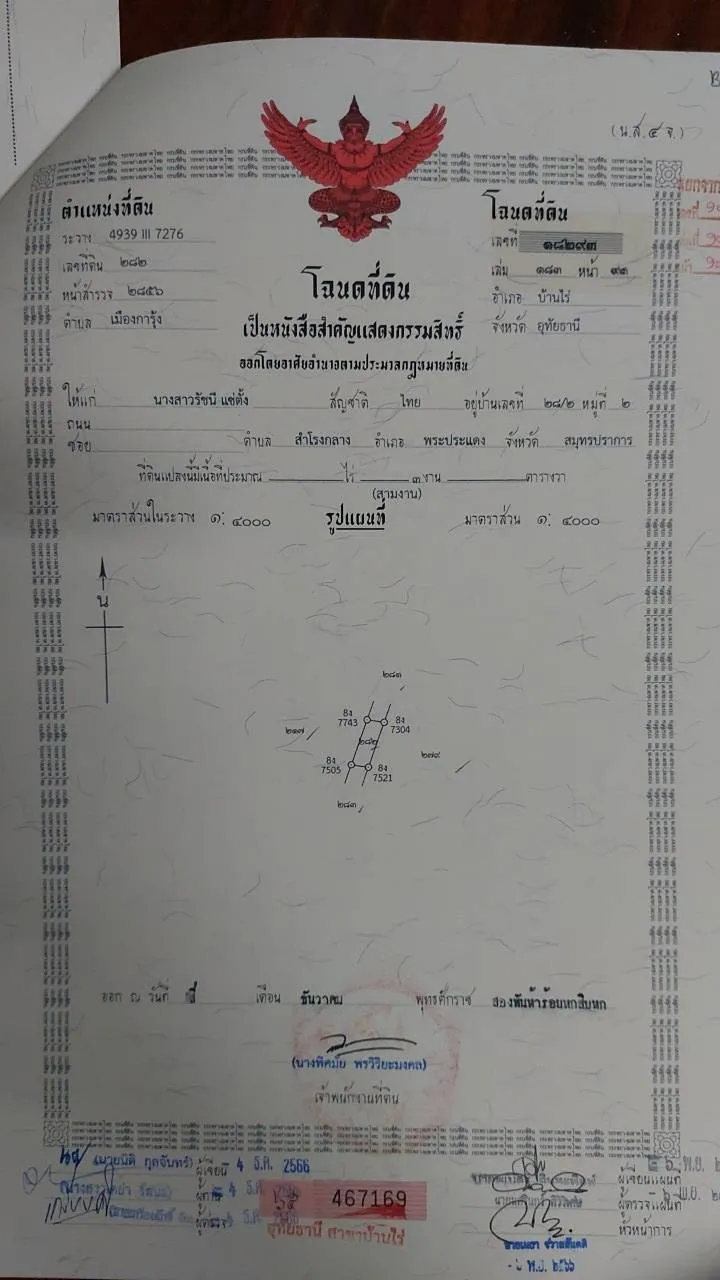 (น.ส.๔ จ.)
ตำแหน่งที่ดิน
ระวาง 4939 III 7276
เลขที่ดิน ๒๘๒
หน้าสำรวจ ๒๘๕๖
ตำบล เมืองการุ้ง
โฉนดที่ดิน
เลขที่ ๑๘๒๙๓
เล่ม ๑๘๓ หน้า ๙๓
อำเภอ บ้านไร่
จังหวัด อุทัยธานี
โฉนดที่ดิน
เป็นหนังสือสำคัญแสดงกรรมสิทธิ์
ออกโดยอาศัยอำนาจตามประมวลกฎหมายที่ดิน
ให้แก่ นางสาวรัชนี แซ่ตั้ง สัญชาติ ไทย อยู่บ้านเลขที่ ๒๘/๒ หมู่ที่ ๒
ถนน
ซอย ตำบล สำโรงกลาง อำเภอ พระประแดง จังหวัด สมุทรปราการ
ที่ดินแปลงนี้มีเนื้อที่ประมาณ ไร่ ๓ งาน ตารางวา
(สามงาน)
มาตราส่วนในระวาง ๑: ๔๐๐๐ รูปแผนที่ มาตราส่วน ๑: ๔๐๐๐
น
๒๘๑
8ง 7743
8ง 7304
๒๑๗
๒๘๒
๒๗๙
8ง 7505
8ง 7521
๒๘๓
ออก ณ วันที่ สี่ เดือน ธันวาคม พุทธศักราช สองพันห้าร้อยหกสิบหก
(นางพิศมัย พรวิริยะมงคล)
เจ้าพนักงานที่ดิน
ผู้เขียน 4 ธ.ค. 2566
467169
อุทัยธานี สาขาบ้านไร่
ผู้เขียนแผนที่
ผู้ตรวจแผนที่
หัวหน้าการ